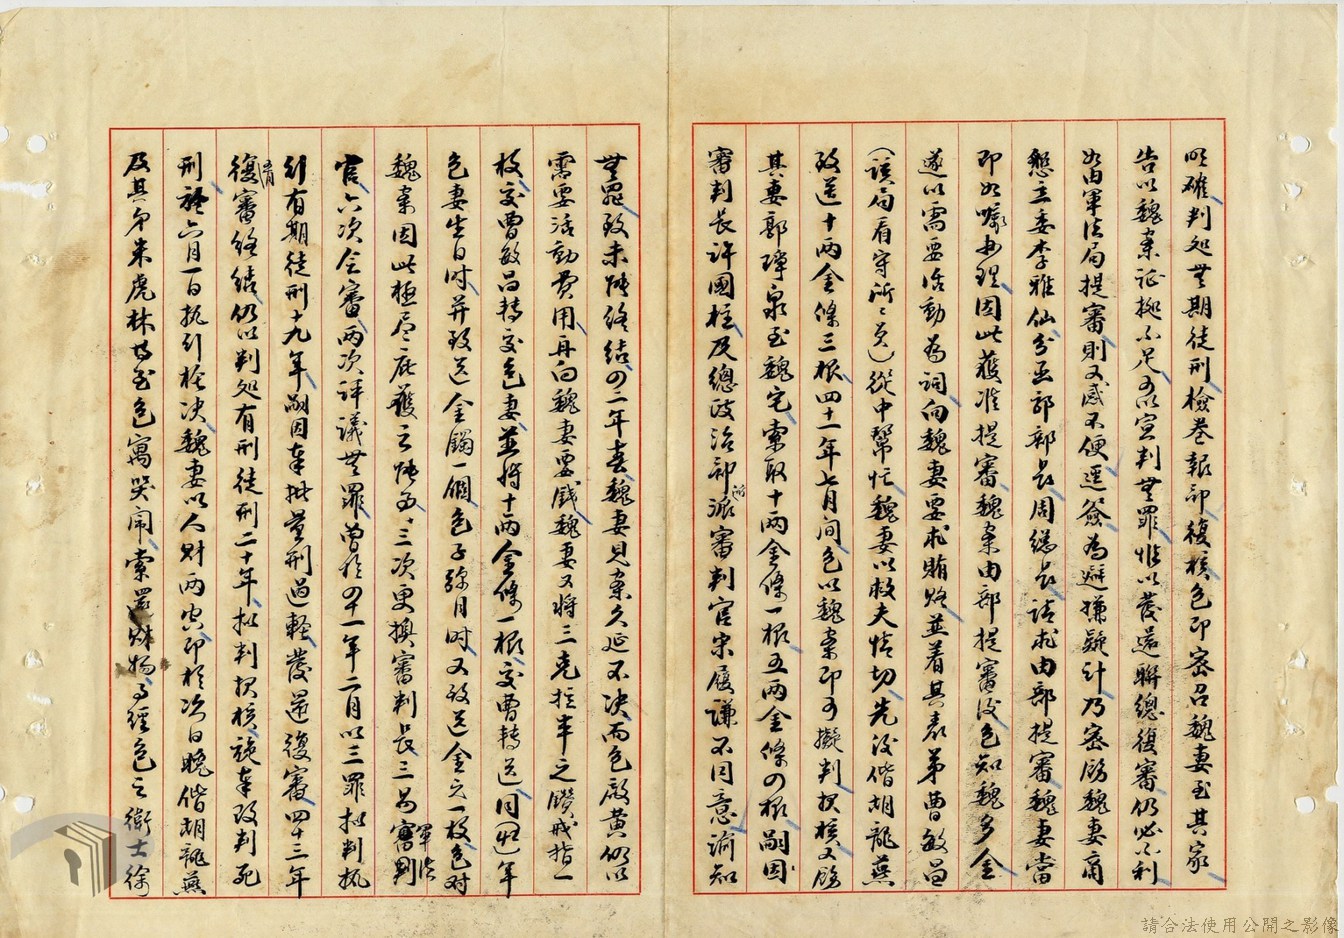 明確、判処無期徒刑、檢卷報部復核、包即密召魏妻至其家
告以魏案証拠不足、原宣判無罪、惟以發還聯總復審、仍必不利
如由軍法局提審、則又感不便逕簽、為避嫌疑計、乃密飭魏妻商
懇立委李雅仙、分函郭部長周總長、請求由部提審、魏妻當
即如囑辦理、因此獲准提審、魏案由部提審後、包知魏多金、
遂以需要活動為詞、向魏妻要求賄賂、並着其表弟曹敏昌
(該局看守所所員)從中幫忙、魏妻以救夫情切、先後偕胡龍燕
致送十兩金條三根、四十一年七月间、包以魏案即可擬判呈核、又飭
其妻郭璋泉至魏宅、索取十兩金條一根五兩金條四根、嗣因
審判長許國柱、及總政治部派審判官宋屐謙不同意諭知
無罪、致未能終結、四二年春、魏妻見案久延不決、而包啟黃仍以
需要活動費用、再向魏妻要錢、魏妻又將三克拉半之鑽戒指一
枚、交曹敏昌轉交包妻、並將十兩金條一根、交曹轉送、同(四二)年
包妻生日時、并致送金鐲一個、包子弥月時、又致送金元一枚、包对
魏案因此極盡庇護之能事、三次更換審判長、三易軍法審判
官、六次会審、兩次評議無罪、曾於四十一年二月以三罪拟判執
行有期徒刑十九年、嗣因奉批量刑過輕、發還復審、四十三年
五月復審終結、仍以判処有期徒刑二十年、拟判呈核、旋奉改判死
刑、於六月一日執行槍決、魏妻以人財兩空、即於次日晚偕胡龍燕
及其弟朱虎林等至包寓哭闹、索還财物、事經包之衛士徐
請合法使用公開之影像